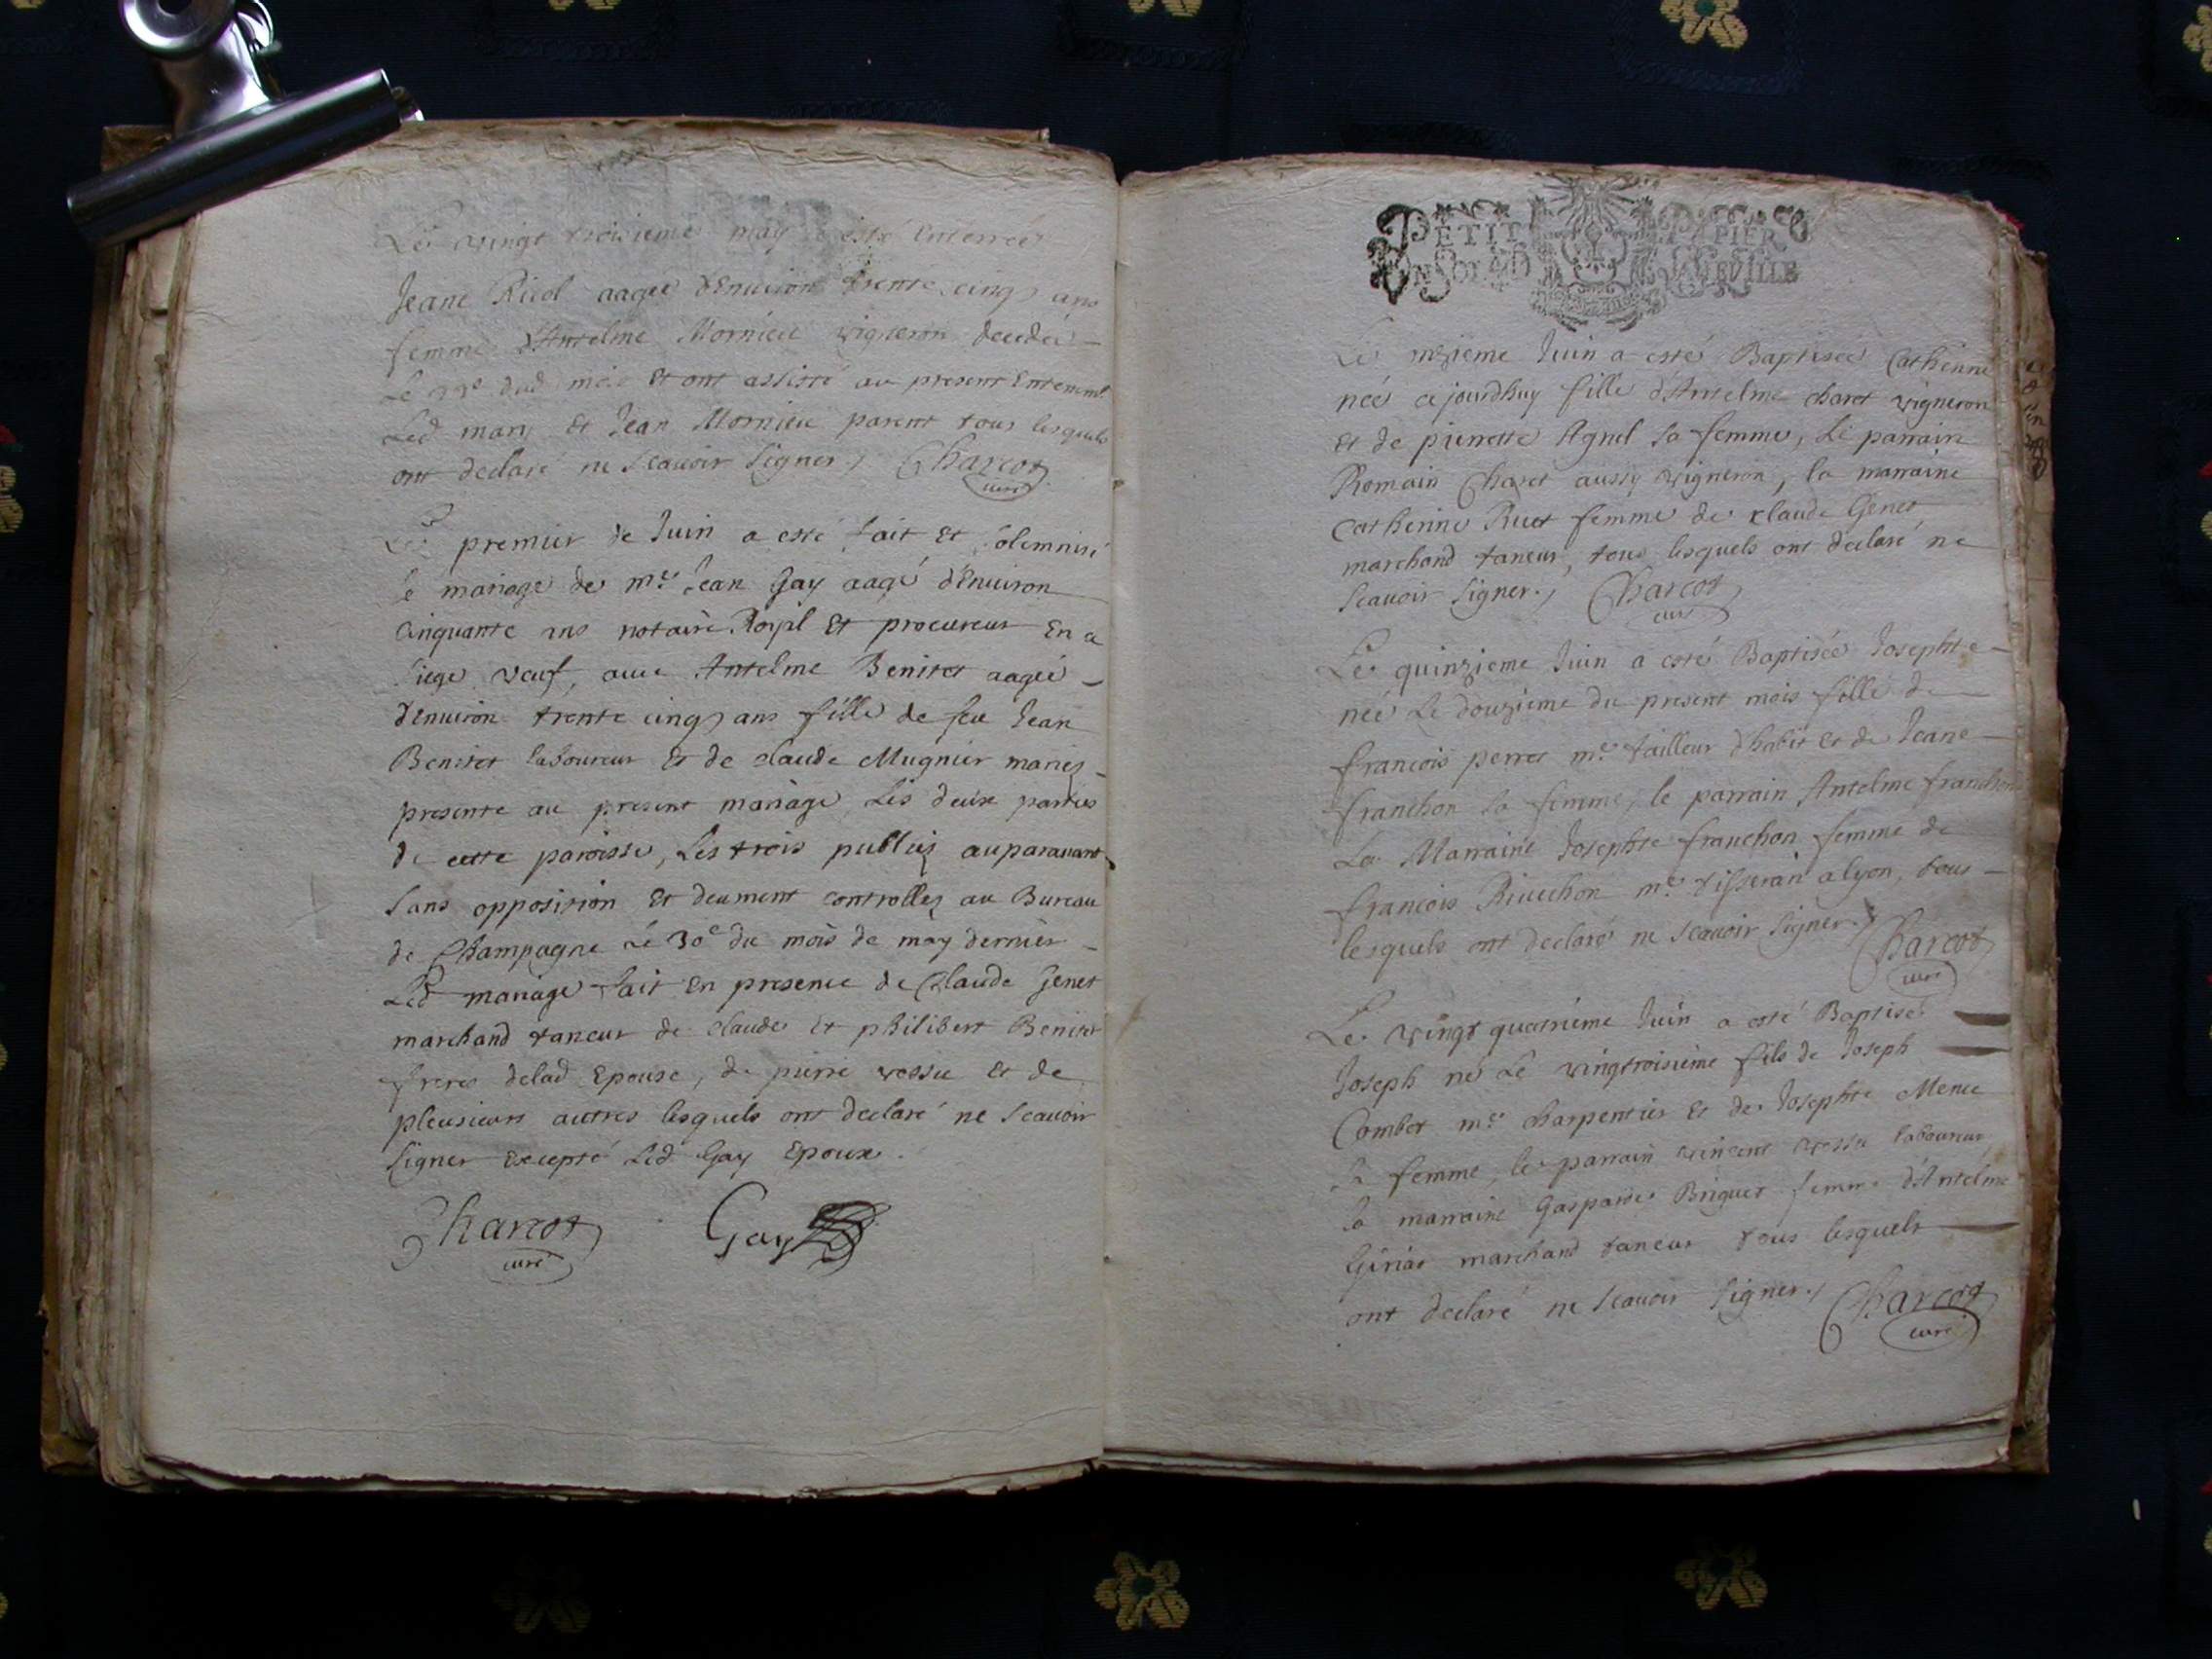 Le vingt troisieme may a esté Enterreé
Jeane Ricol aageé d'Enuiron trente cinq ans
femme d'Antelme Mornieu vigneron decedeé
Le 22e dud mois Et ont assisté au present Enterremt
Led mary Et Jean Mornieu parent tous lesquels
ont declaré ne scauoir signer, Charcot
curé
Le premier de Juin a esté fait Et solemnisé
le mariage de me Jean Gay aagé d'Enuiron
Cinquante ans notaire Royal Et procureur En ce
siege veuf, auec Antelme Benitet aageé
d'Enuiron trente cinq ans fille de feu Jean
Benitet laboureur Et de claude Mugnier mariez
presente au present mariage, Les deux parties
de cette paroisse, Les trois publiez auparauant
sans opposition Et deument controllez au Bureau
de Champagne Le 30e du mois de may dernier
Led mariage fait En presence de Claude Genet
marchand taneur de claude Et philibert Benitet
freres delad Epouse, de pierre vessie Et de
pleusieurs autres lesquels ont declaré ne scauoir
signer Excepté Led Gay Epoux.
Charcot Gay
curé
PETIT PAPIER
UN SOL 4D LA FEVILLE
Le onzieme Juin a esté Baptiseé Catherine
neé cejourdhuy fille d'Antelme charet vigneron
Et de pierrette Agnel sa femme, Le parrain
Romain Charet aussy vigneron, la marraine
Catherine Ruet femme de claude Genet
marchand taneur, tous lesquels ont declaré ne
scauoir signer., Charcot
curé
Le quinzieme Juin a esté Baptiseé Josephte
neé Le douzieme du present mois fille de
francois perret me tailleur d'habit Et de Jeane
franchon sa femme, le parrain Antelme franchon
La Marraine Josephte franchon femme de
francois Riuechon me tisseran a lyon, tous
lesquels ont declaré ne scauoir signer., Charcot
curé
Le vingt quatriéme Juin a esté Baptisé
Joseph né Le vingtroisieme fils de Joseph
Combet me charpentier Et de Josephte Menu
sa femme, le parrain vincent vessie laboureur,
la marraine Gasparde Briquet femme d'Antelme
Giriat marchand taneur tous lesquels
ont declaré ne scauoir signer., Charcot
curé